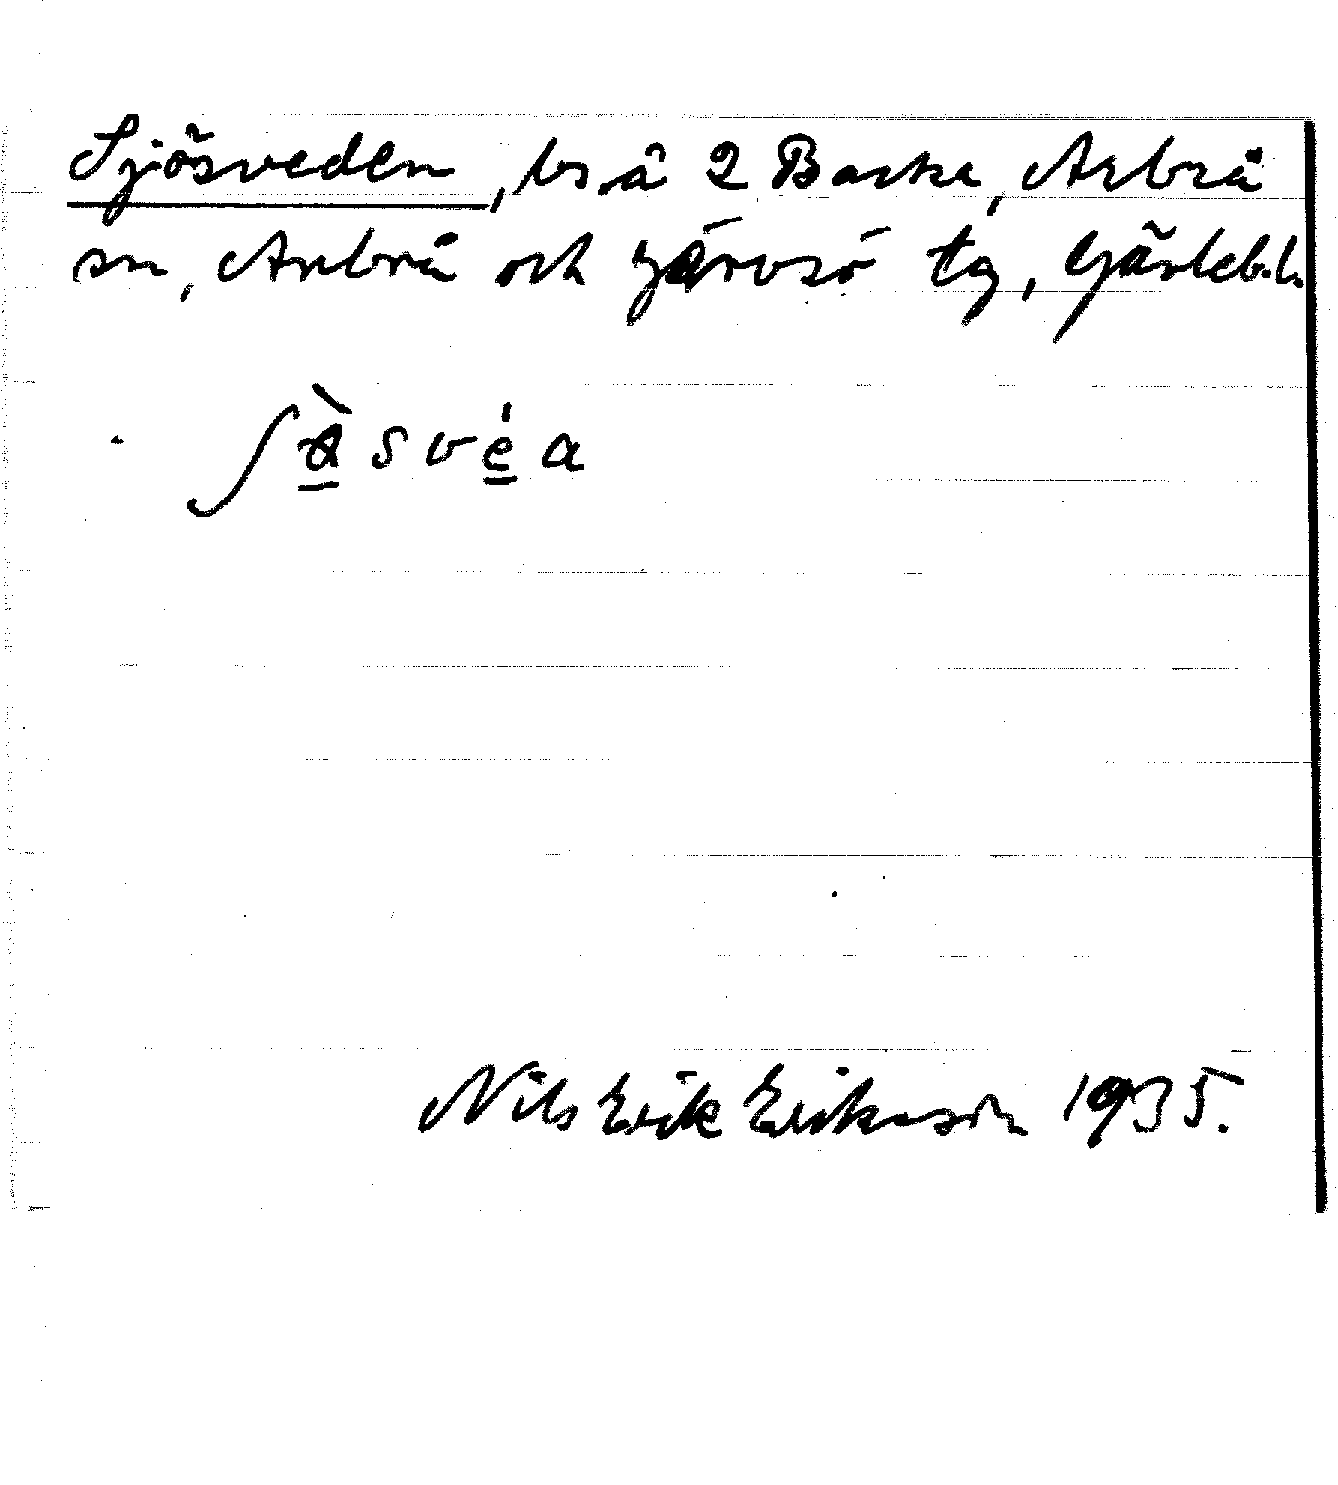 Sjösveden, bs. å 2 Backa, Arbrå
sn, Arbrå och Järvsö tg, Gävleb. l.
Nils Erik Eriksson 1935.